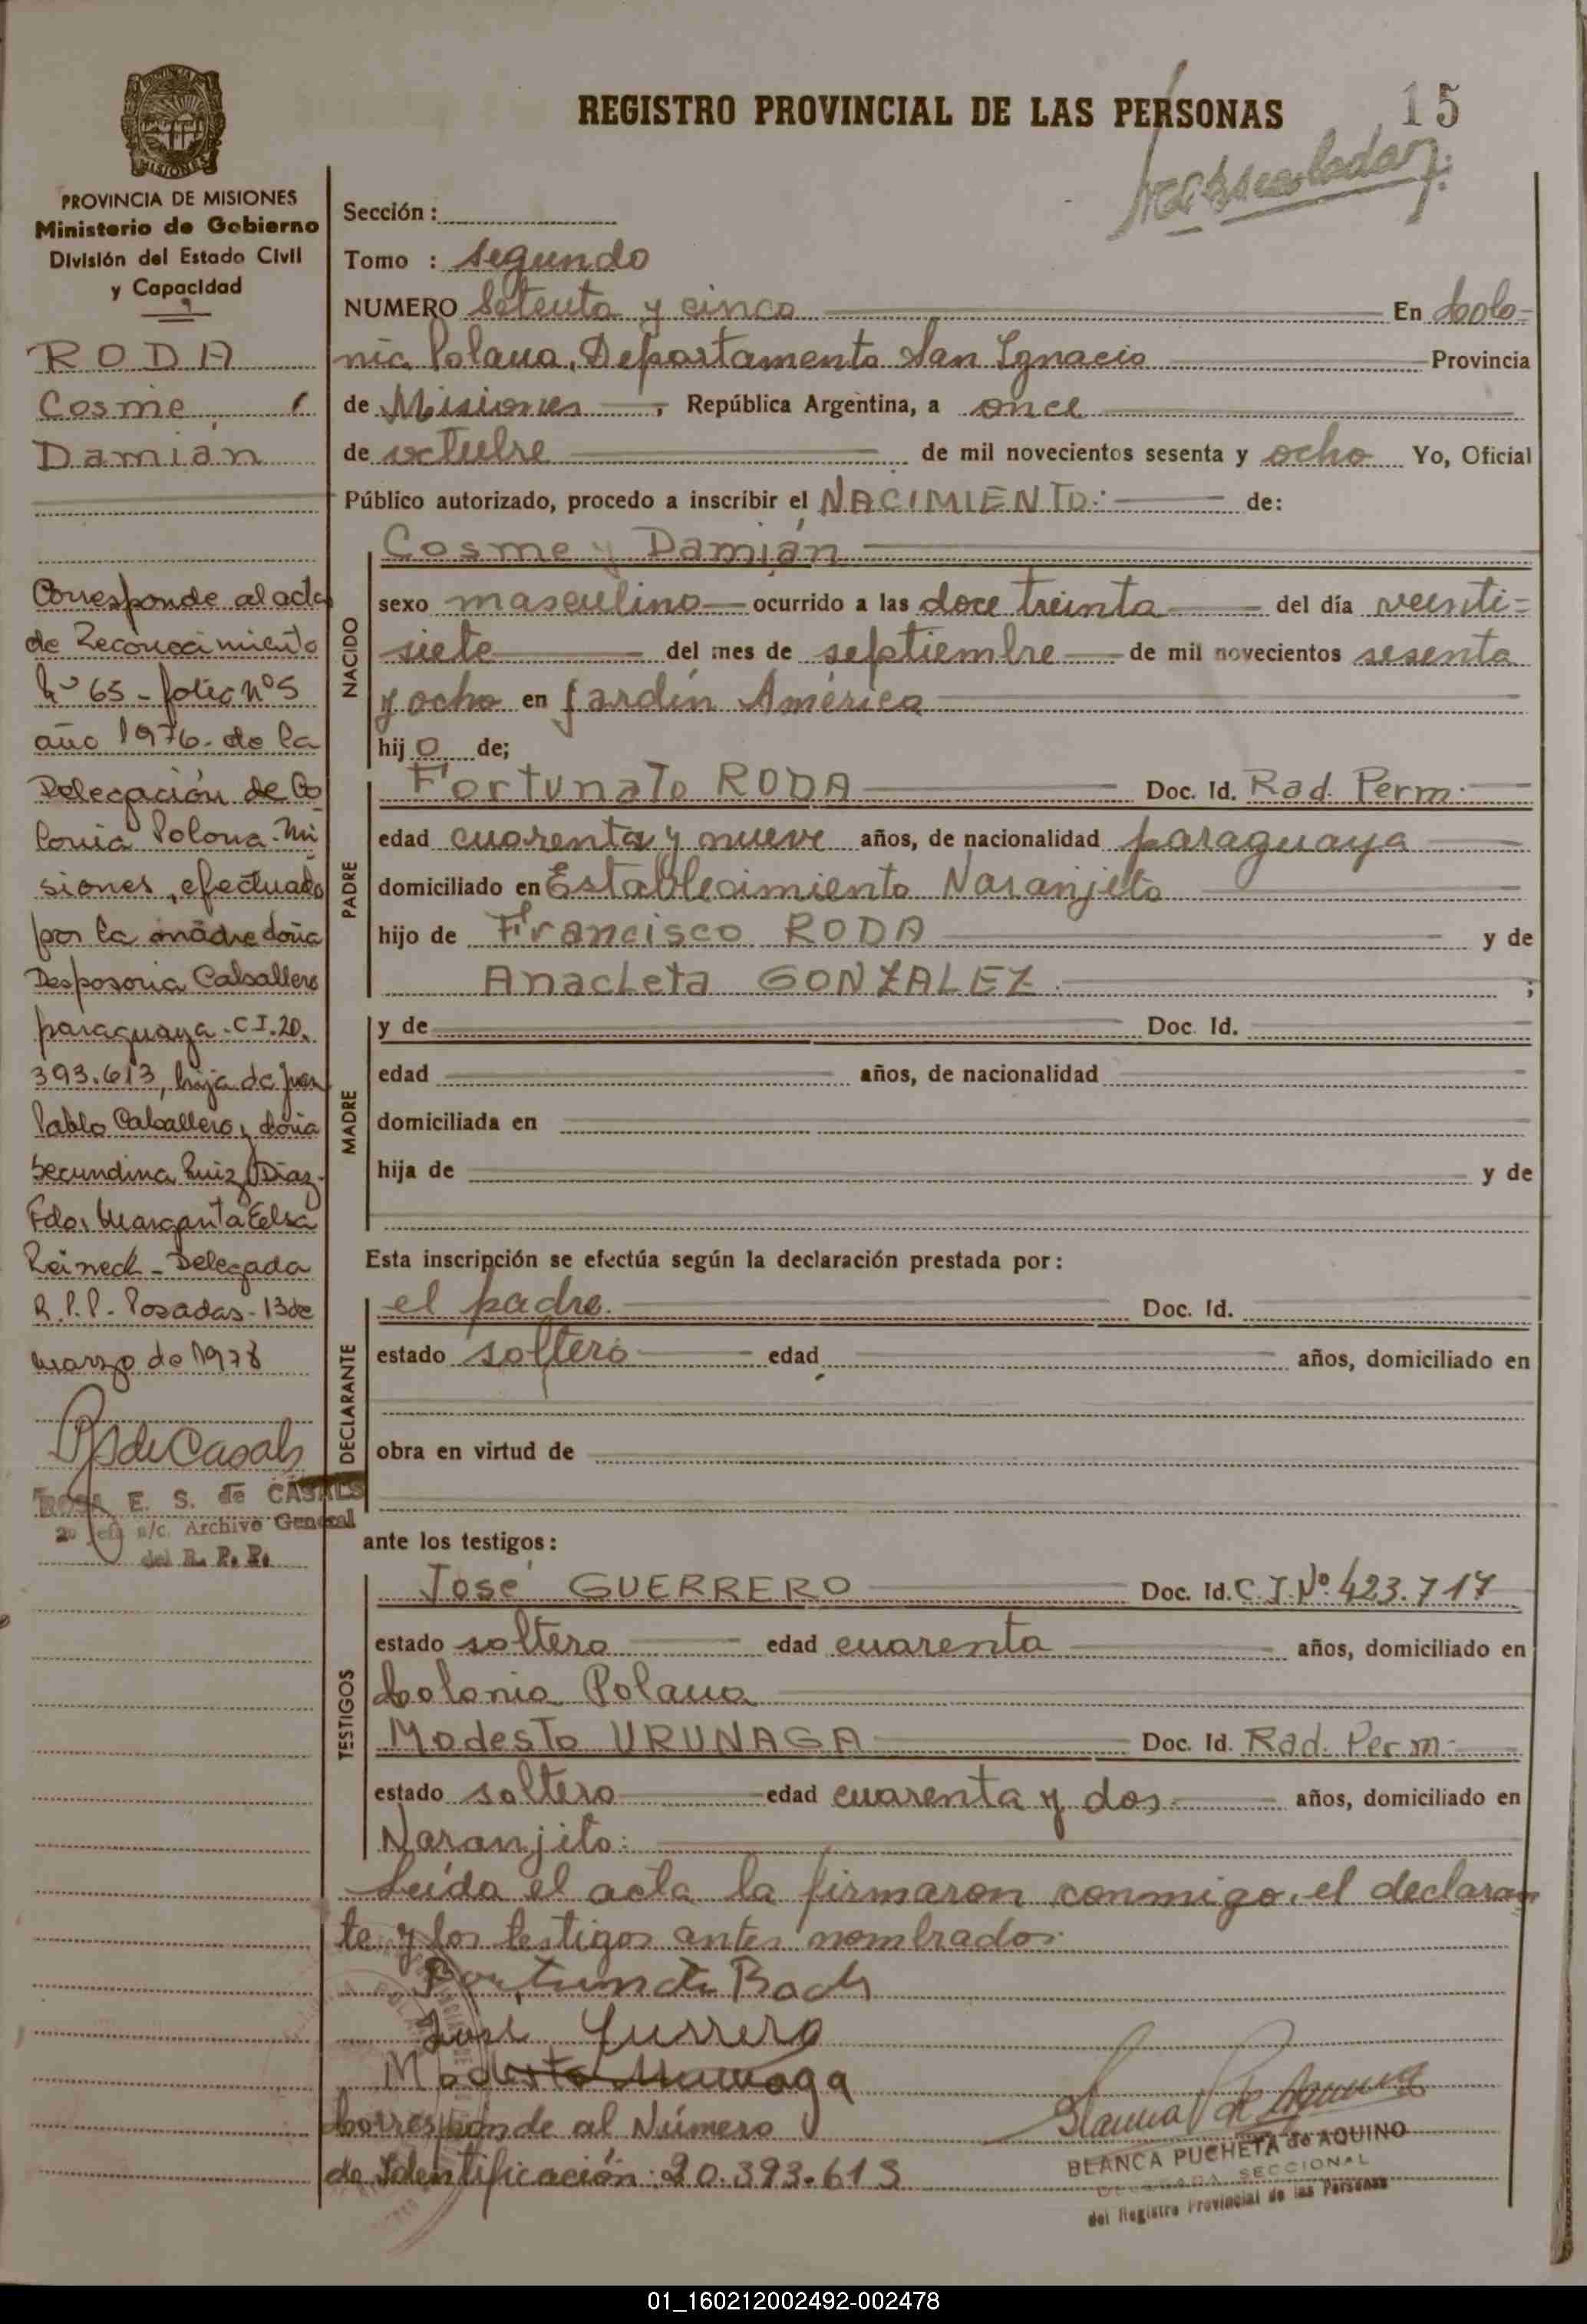 REGISTRO PROVINCIAL DE LAS PERSONAS
15
MISIONES
PROVINCIA DE MISIONES
Ministerio de Gobierno
División del Estado Civil
y Capacidad
RODA
Cosme
Damián
Corresponde al acta
de Reconocimiento
Nº 65 - folio nº 5
año 1976. de la
Delegación de Co
lonia Polona - Mi
siones, efectuado
por la madre doña
Desposoria Caballero
paraguaya - C.I. 20.
393.613, hija de Juan
Pablo Caballero y doña
Secundina Ruiz Diaz.
Fdo: Margarita Elsa
Reineck - Delegada
R.P.P. - Posadas - 13 de
marzo de 1978
RSdeCasals
ROSA E. S. de CASALS
2º Jefe a/c. Archivo General
del R. P. P.
Sección :
Tomo : Segundo
NUMERO Setenta y cinco En Colo-
nia Polana, Departamento San Ignacio Provincia
de Misiones, República Argentina, a once
de octubre de mil novecientos sesenta y ocho Yo, Oficial
Público autorizado, procedo a inscribir el NACIMIENTO: de:
NACIDO
Cosme y Damián
sexo masculino ocurrido a las doce treinta del día veinti-
siete del mes de septiembre de mil novecientos sesenta
y ocho en Jardín América
hijo de;
PADRE
Fortunato RODA Doc. Id. Rad. Perm.
edad cuarenta y nueve años, de nacionalidad paraguaya
domiciliado en Establecimiento Naranjito
hijo de Francisco RODA y de
Anacleta GONZALEZ. ;
MADRE
y de Doc. Id.
edad años, de nacionalidad
domiciliada en
hija de y de
Esta inscripción se efectúa según la declaración prestada por:
DECLARANTE
el padre. Doc. Id.
estado soltero edad años, domiciliado en
obra en virtud de
ante los testigos:
TESTIGOS
José GUERRERO Doc. Id. C.I. Nº 423.717
estado soltero edad cuarenta años, domiciliado en
Colonia Polana
Modesto URUNAGA Doc. Id. Rad. Perm.
estado soltero edad cuarenta y dos años, domiciliado en
Naranjito:
Leída el acta la firmaron conmigo, el declaran
te y los testigos antes nombrados:
José Gurrero
Modesto
Corresponde al Número
de Identificación: 20.393.613
BLANCA PUCHETA de AQUINO
DELEGADA SECCIONAL
del Registro Provincial de las Personas
01_160212002492-002478